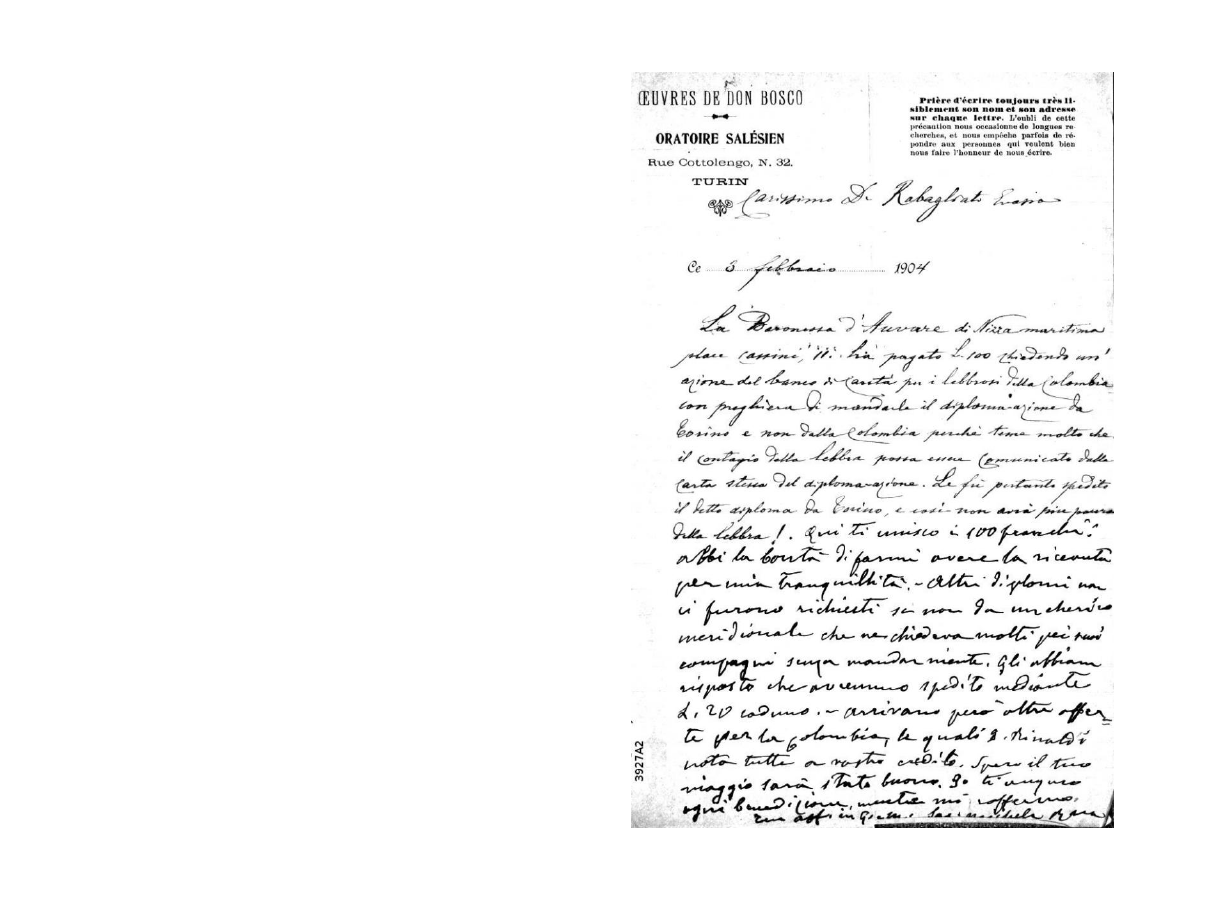 ŒUVRES DE DON BOSCO
ORATOIRE SALÉSIEN
Rue Cottolengo, N. 32.
TURIN
Prière d'écrire toujours très li-
siblement son nom et son adresse
sur chaque lettre. L'oubli de cette
précaution nous occasionne de longues re-
cherches, et nous empêche parfois de ré-
pondre aux personnes qui veulent bien
nous faire l'honneur de nous écrire.
Carissimo D. Rabagliati Evasio
Ce 3 febbraio 1904
La Baronessa d'Auvare di Nizza marittima
place Cassini, 11. ha pagato L. 100 chiedendo un'
azione del banco di Carità pei i lebbrosi della Colombia
con preghiera di mandarle il diploma-azione da
Torino e non dalla Colombia perchè teme molto che
il contagio della lebbra possa essere comunicato dalla
carta stessa del diploma-azione. Le fu pertanto spedito
il detto diploma da Torino, e così non avrà più paura
della lebbra!. Qui ti unisco i 100 franchi.
abbi la bontà di farmi avere la ricevuta
per mia tranquillità. - Altri diplomi non
ci furono richiesti se non da un cherico
meridionale che ne chiedeva molti pei suoi
compagni senza mandar niente. Gli abbiam
risposto che avremmo spedito mediante
L. 20 caduno. - Arrivano però altre offer-
te per la Colombia, le quali D. Rinaldi
nota tutte a vostro credito. Spero il tuo
viaggio sarà stato buono. Io ti auguro
ogni benedizione, mentre mi raffermo.
Rua
3927A2